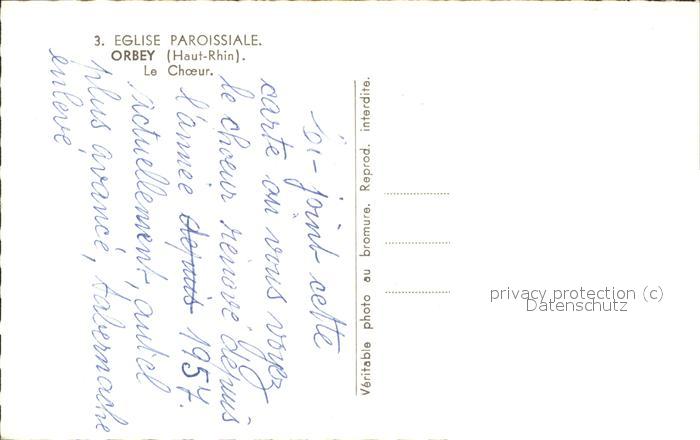 3. EGLISE PAROISSIALE.
ORBEY (Haut-Rhin).
Le Chœur.
Ci-joint cette
carte où vous voyez
le chœur rénové depuis
l'année depuis 1957.
Actuellement, autel
plus avancé, tabernacle
enlevé
Véritable photo au bromure. Reprod. interdite.
privacy protection (c)
Datenschutz